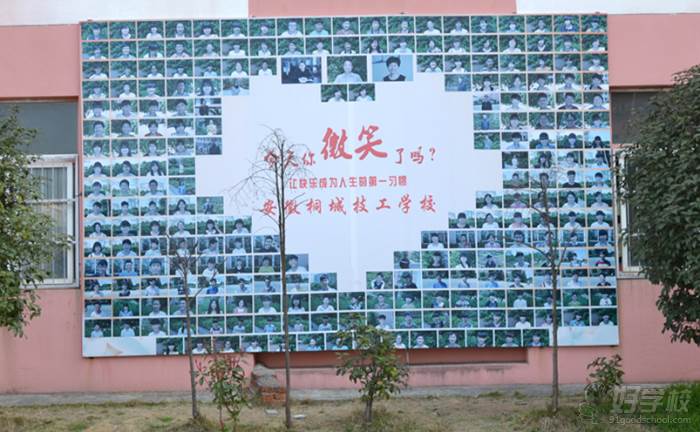 今天你微笑了吗?
让快乐成为人生的第一习惯
安徽桐城技工学校
好学校
91goodschool.com